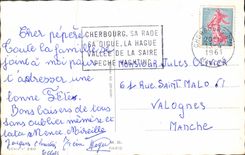 Cher pépère
Toute la famille se
joint à moi pour
t'adresser une
bonne Fête.
Bons baisers de tous
sans oublier mémère et
Mireille
CHERBOURG, SA RADE
SA DIGUE, LA HAGUE
VALLÉE DE LA SAIRE
PECHE YACHTING
1961
Monsieur Jules Olivier
61 Rue Saint Malo
VALOGNES
Manche